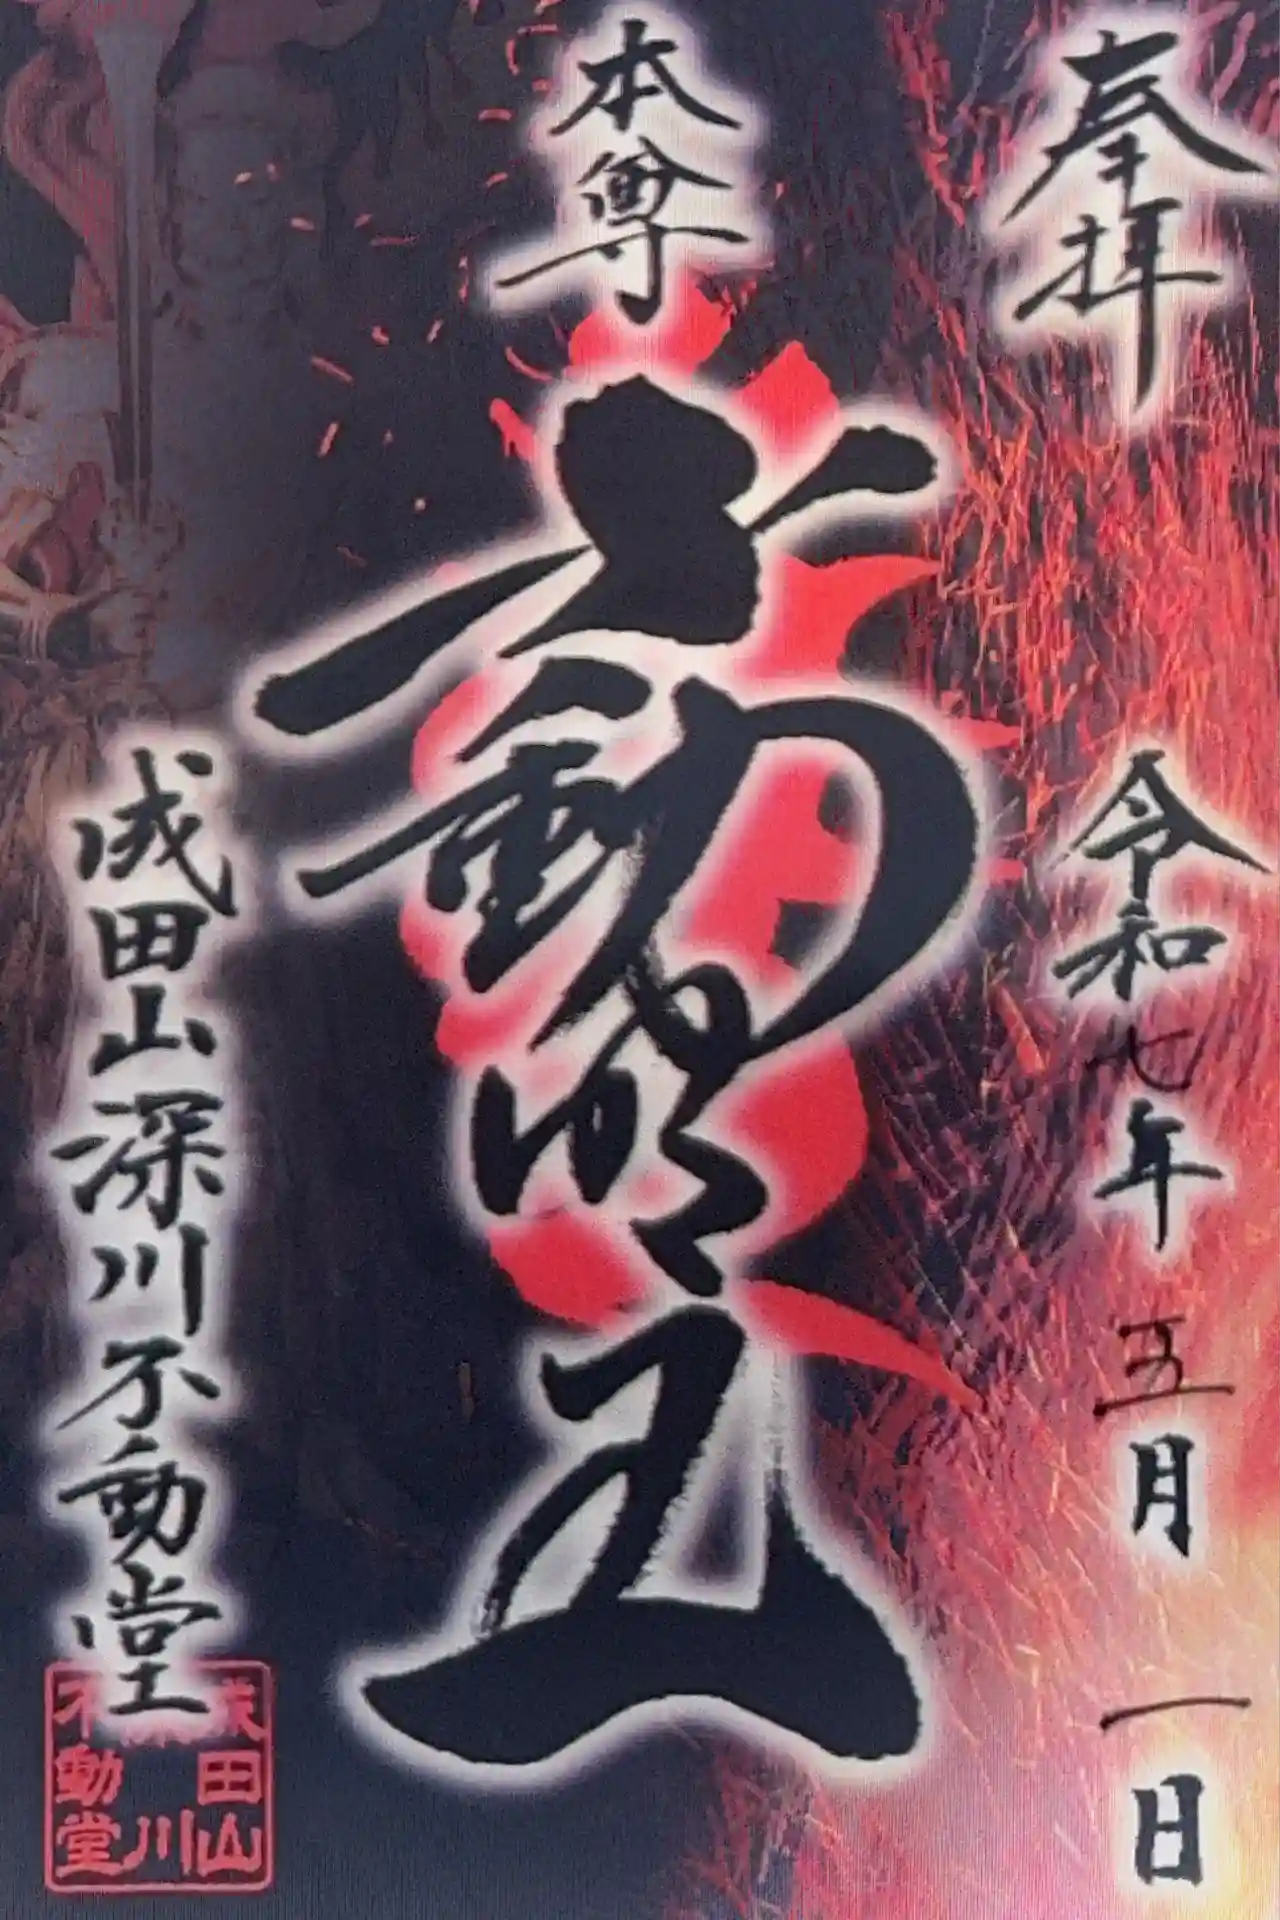 奉拝
令和七年五月一日
本尊
不動明王
成田山深川不動堂
成田山
深川
不動堂